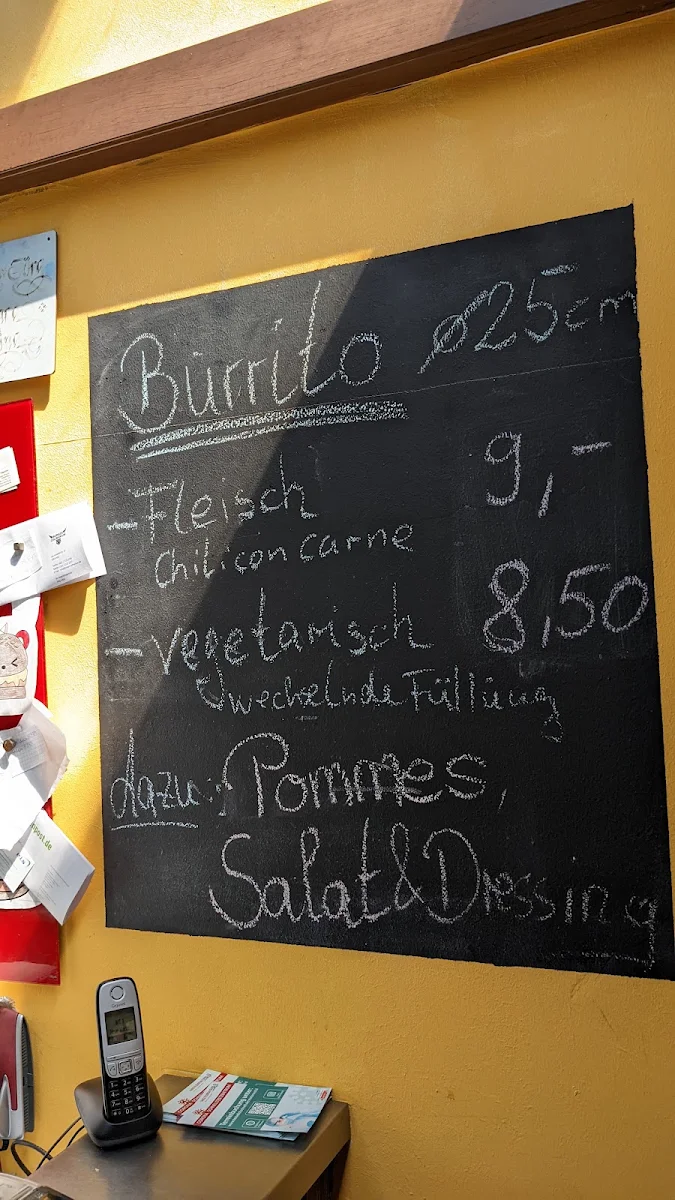 Burrito ø25cm
- Fleisch 9,-
Chili con carne
- vegetarisch 8,50
wechselnde Füllung
dazu: Pommes,
Salat & Dressing
Gigaset
post.de